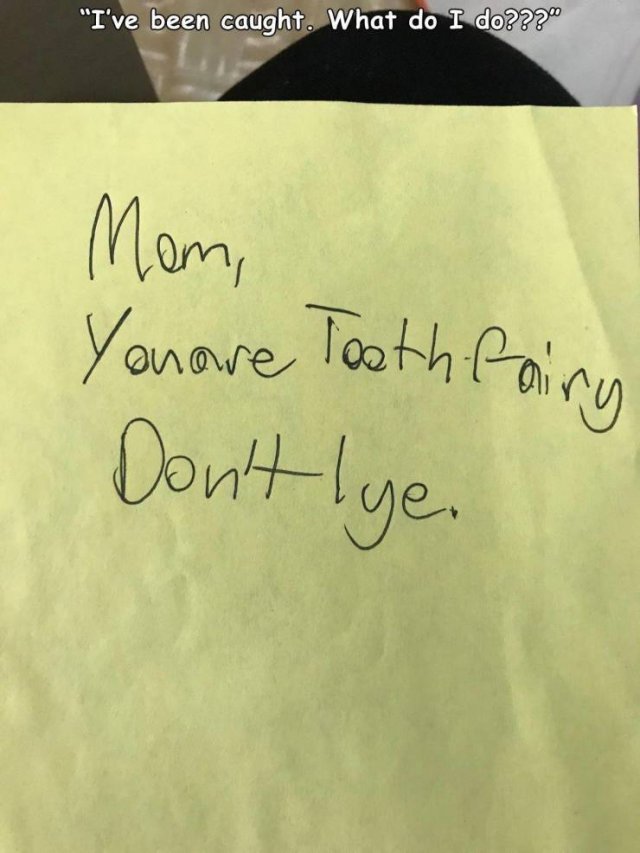 "I've been caught. What do I do???"
Mom,
You are Tooth fairy
Don't lye.